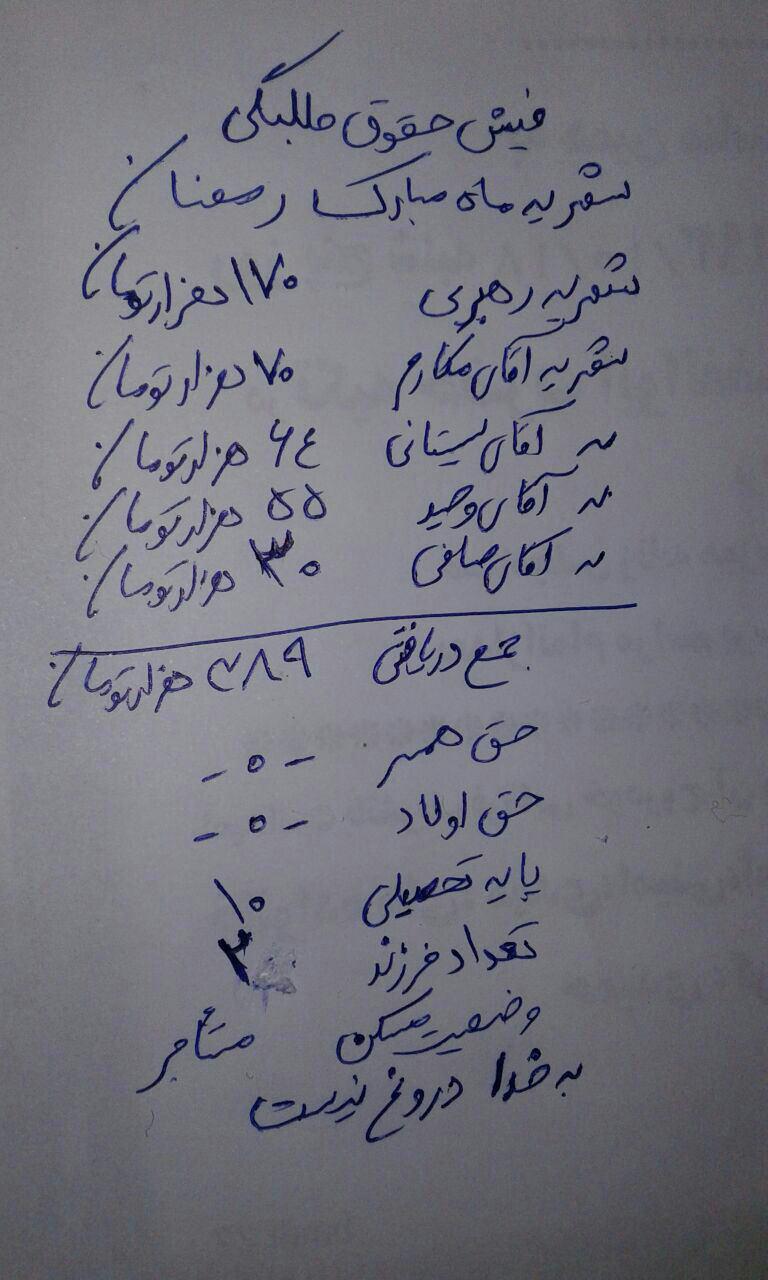 فیش حقوق طلبگی
شهریه ماه مبارک رمضان
شهریه رهبری ۱۷۰ هزار تومان
شهریه آقای مکارم ۷۰ هزار تومان
〃 آقای سیستانی ۶۴ هزار تومان
〃 آقای وحید ۵۵ هزار تومان
〃 آقای صافی ۳۰ هزار تومان
جمع دریافتی ۳۸۹ هزار تومان
حق همسر -۰-
حق اولاد -۰-
پایه تحصیلی ۱۰
تعداد فرزند ۲
وضعیت مسکن مستأجر
به خدا دروغ نیست